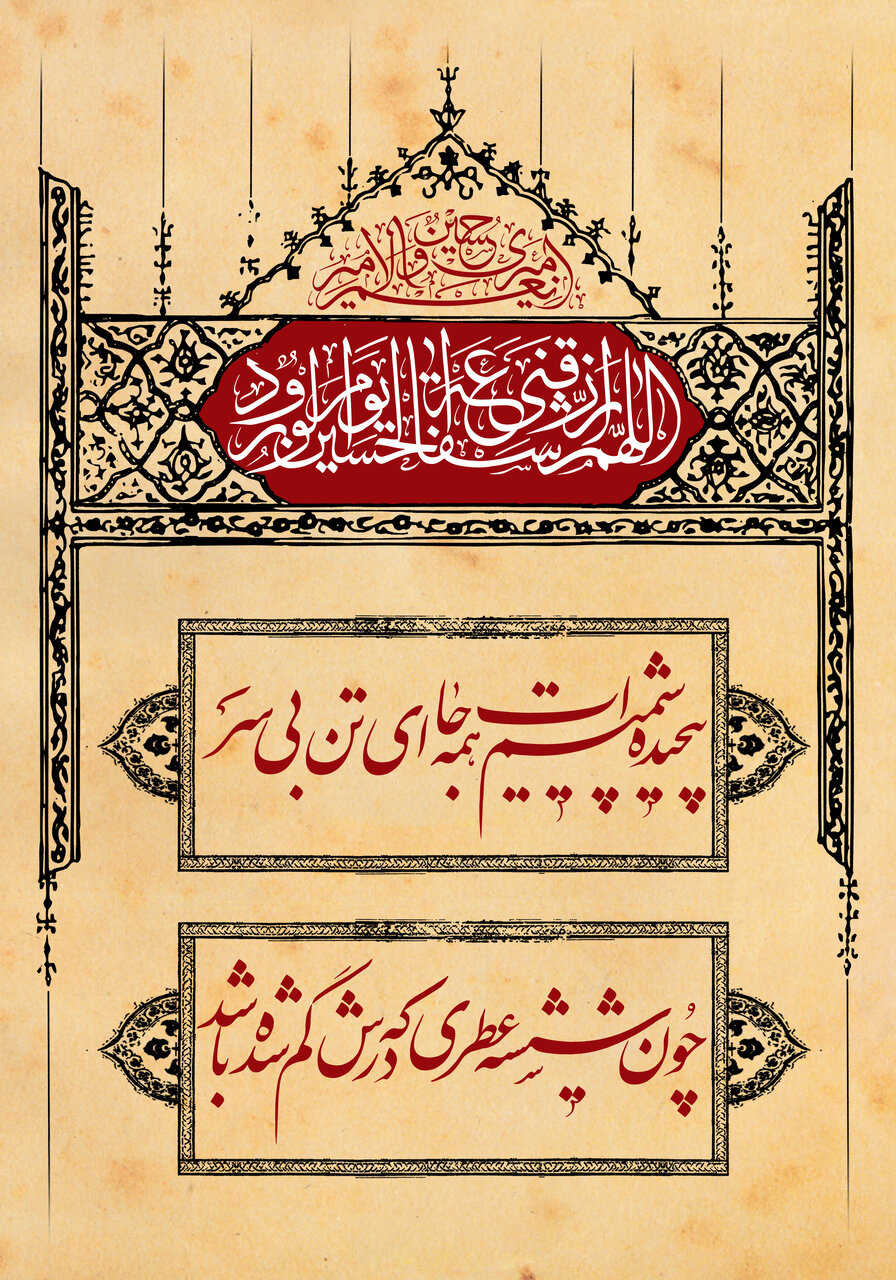 امیری حسین و نعم الامیر
اللهم ارزقنی شفاعة الحسین یوم الورود
پیچیده شمیمت همه جا ای تن بی سر
چون شیشه عطری که درش گم شده باشد